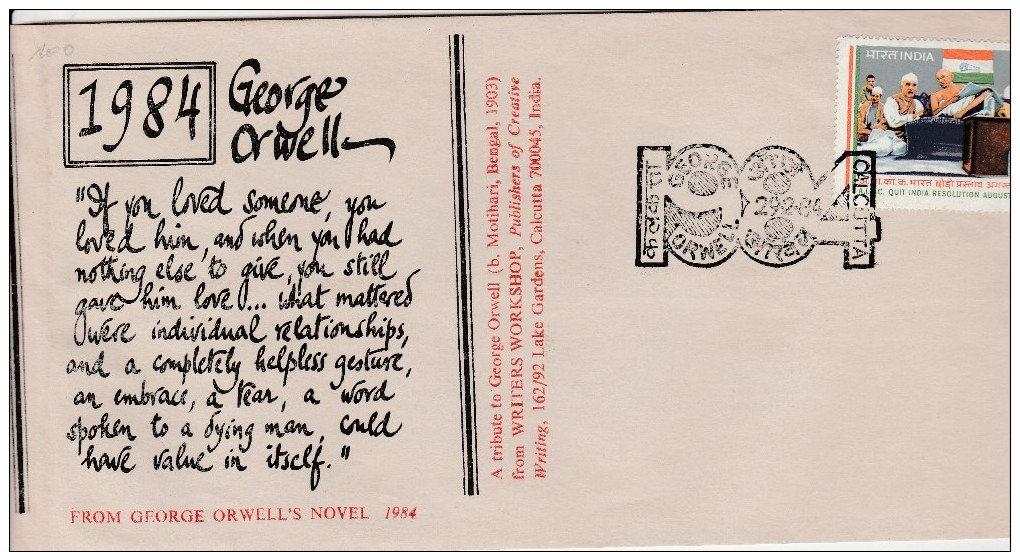 1984
George
Orwell
"If you loved someone, you
loved him, and when you had
nothing else to give, you still
gave him love... what mattered
were individual relationships,
and a completely helpless gesture,
an embrace, a tear, a word
spoken to a dying man, could
have value in itself."
FROM GEORGE ORWELL'S NOVEL 1984
A tribute to George Orwell (b. Motihari, Bengal, 1903)
from WRITERS WORKSHOP, Publishers of Creative
Writing, 162/92 Lake Gardens, Calcutta 700045, India.
भारत INDIA
का.क. भारत छोड़ो प्रस्ताव अगस्त
QUIT INDIA RESOLUTION AUGUST
कलकत्ता
GEORGE
ORWELL
CALCUTTA